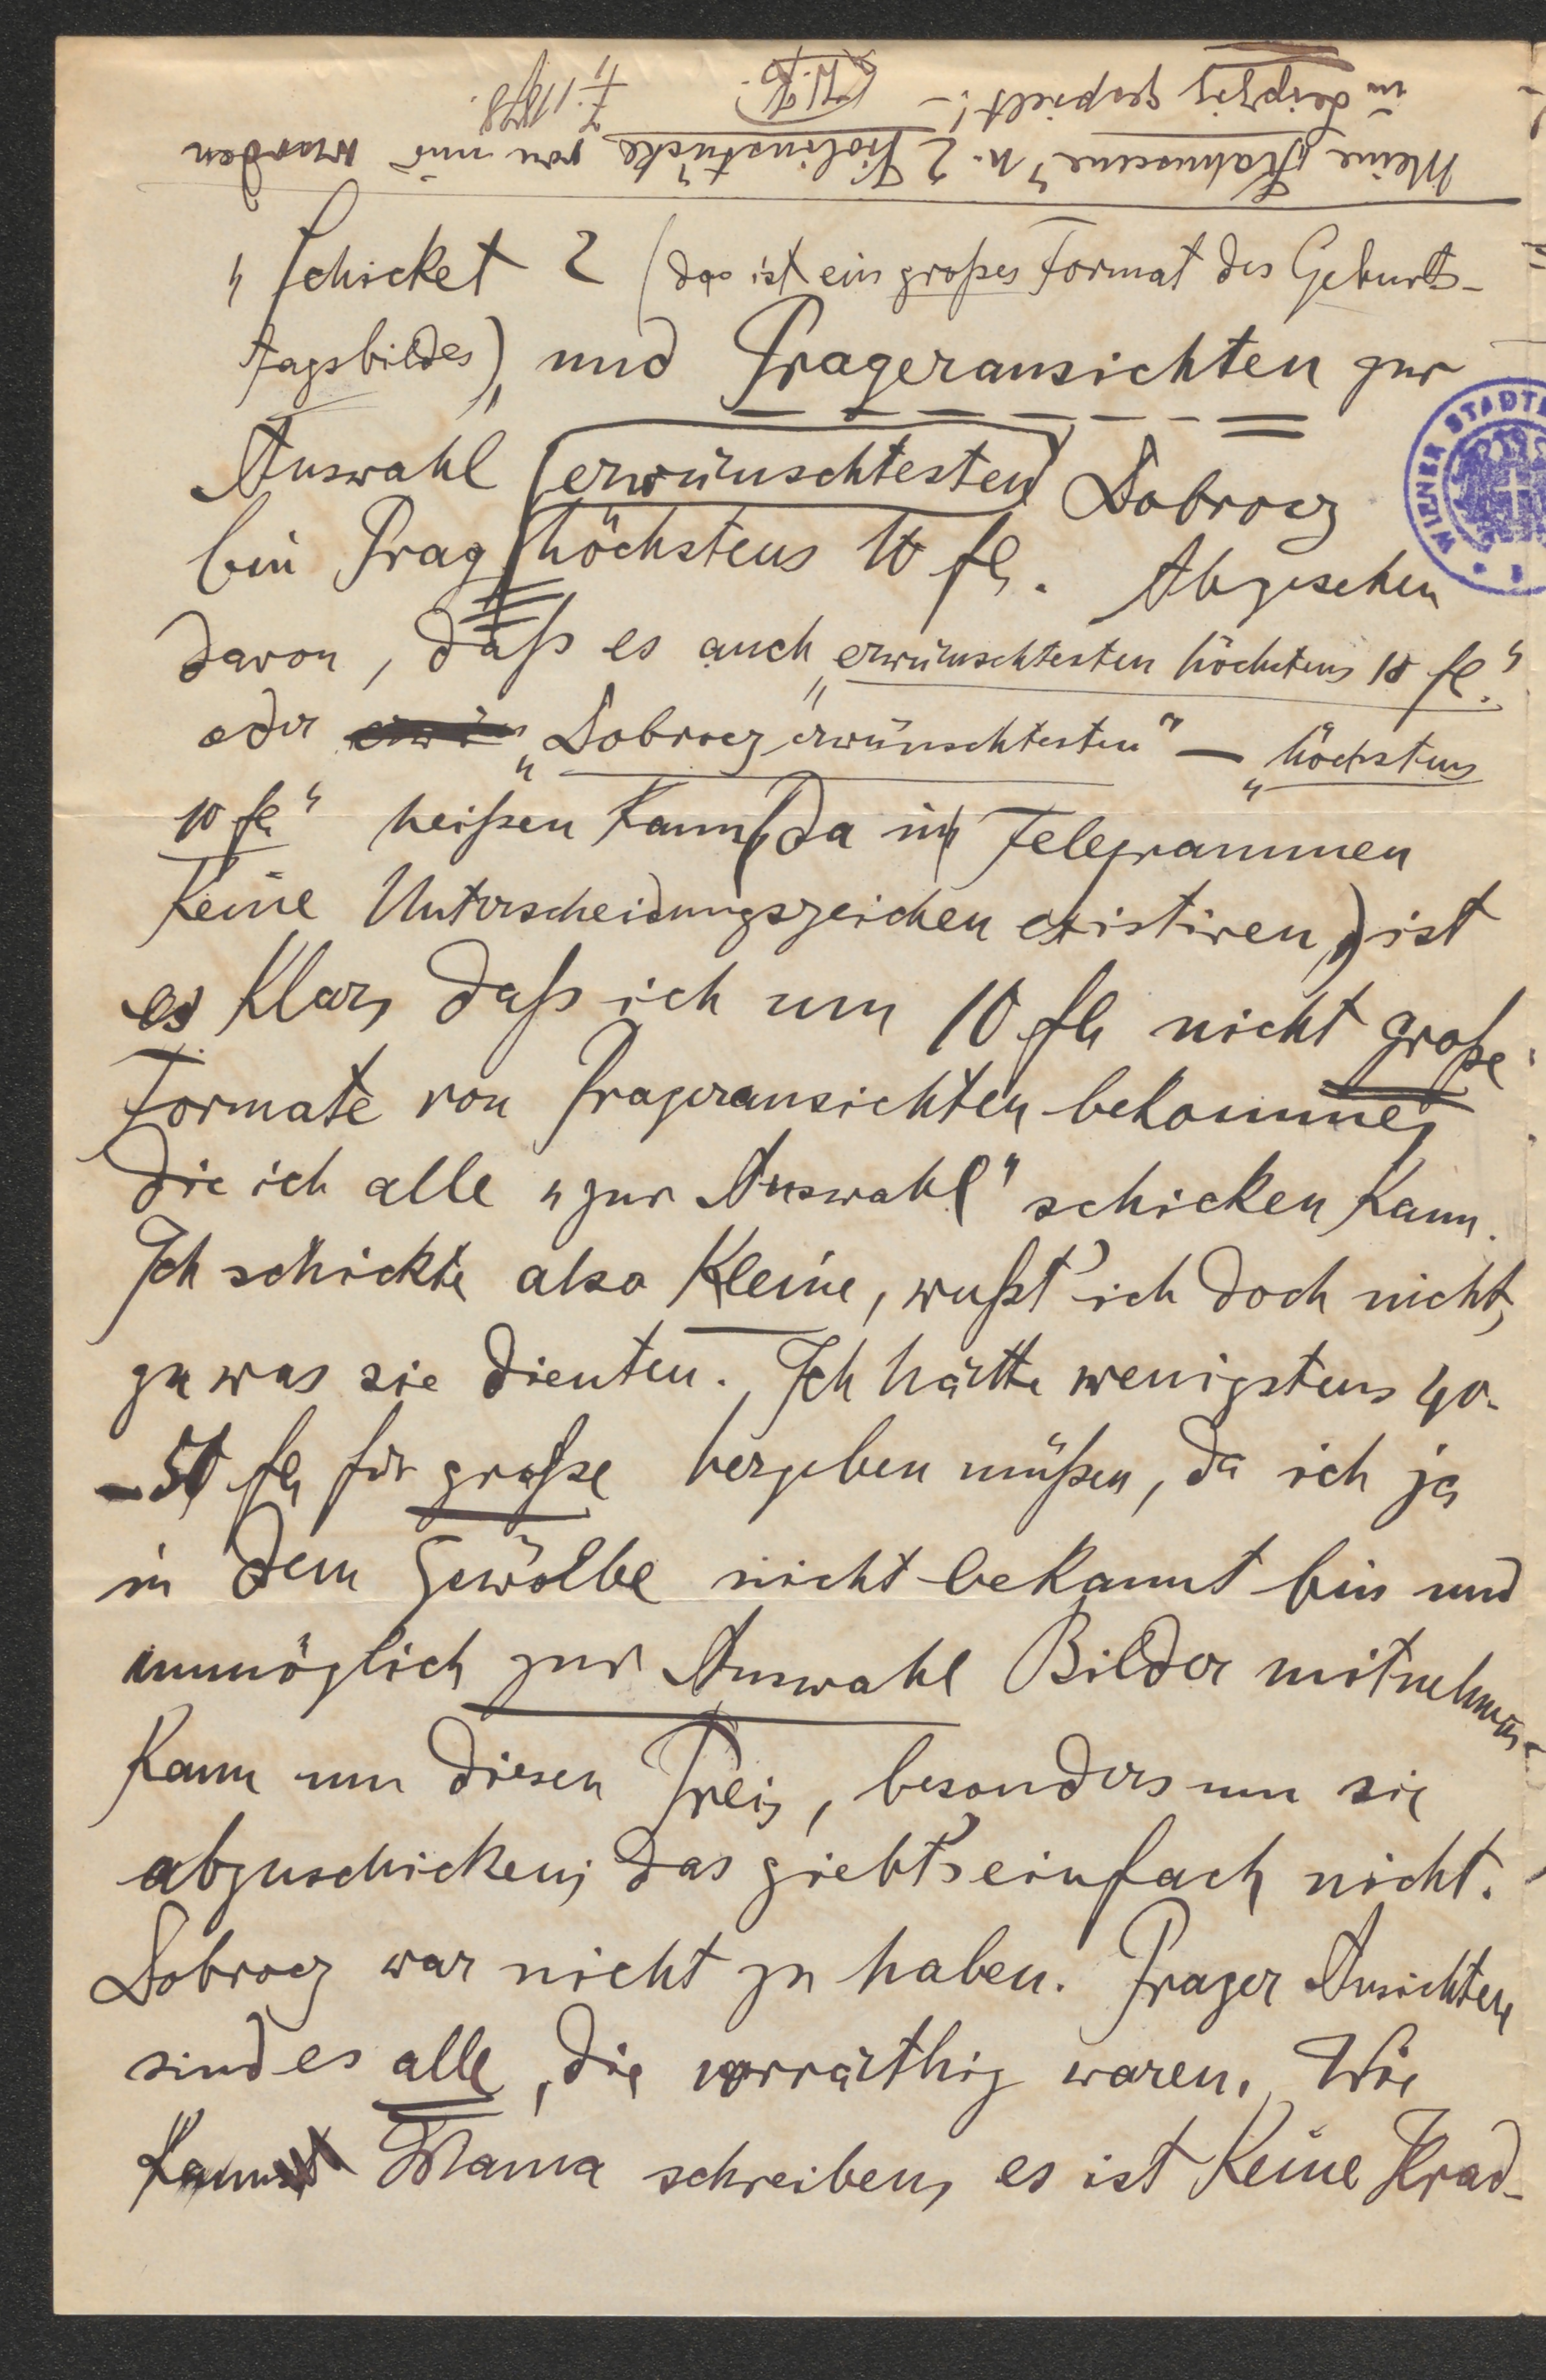 Meine „Kahnscene“ u. 2 Violinstücke von mir wurden
in Leipzig gespielt! –
7./11878.
„Schicket 2 (das ist ein großes Format des Geburts-
tagsbildes)„ und Prageransichten zur
Auswahl erwünschtesten Dobrocz
bin Prag höchstens 10 fl. Abgesehen
davon, daß es auch „erwünschtesten höchstens 10 fl.“
oder „Dobrocz erwünschtesten“ – „höchstens
10 fl“ heißen kann (da in Telegrammen
keine Unterscheidungszeichen existiren,) ist
es klar, daß ich um 10 fl nicht große
Formate von Prageransichten bekomme,
die ich alle „zur Auswahl“ schicken kann.
Ich schickte also kleine, wußt' ich doch nicht,
zu was sie dienten. Ich hätte wenigstens 40-
–50 fl für große hergeben müßen, da ich ja
in dem Gewölbe nicht bekannt bin und
unmöglich zur Auswahl Bilder mitnehmen
kann um diesen Preis, besonders um sie
abzuschicken; das giebt's einfach nicht.
Dobrocz war nicht zu haben. Prager Ansichten
sind es alle, die vorräthig waren. Wie
kann Mama schreiben, es ist keine Hrad-
WIENER STADT